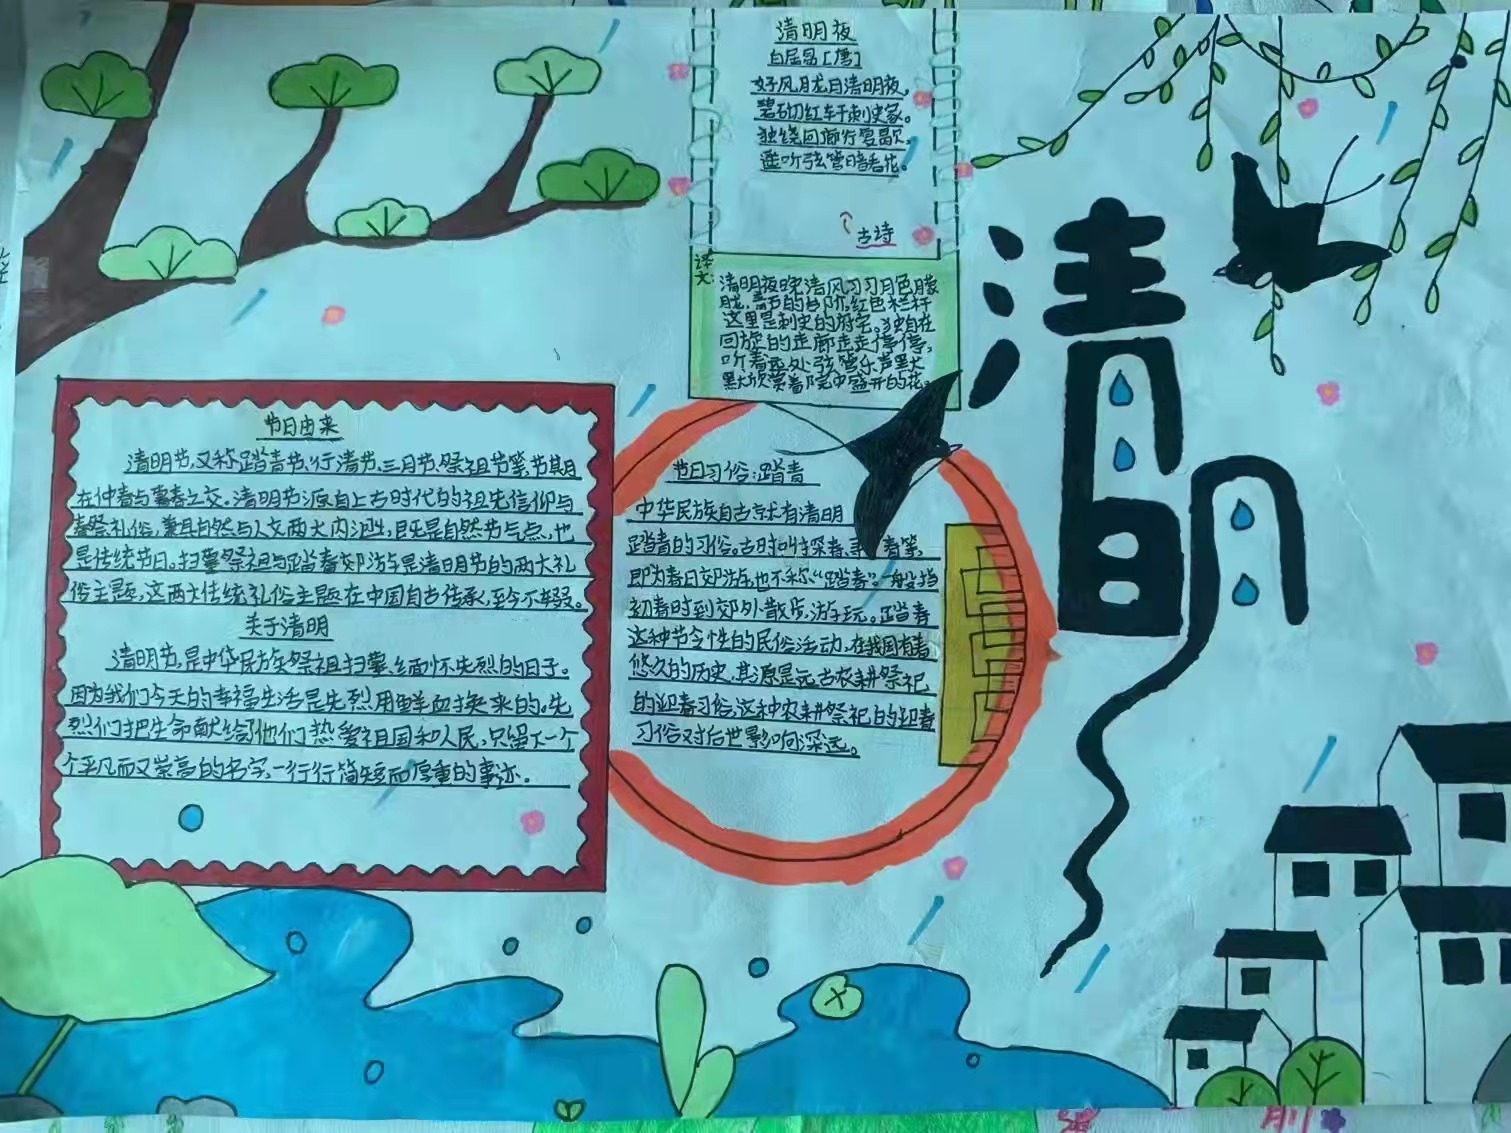 清明夜
白居易[唐]
好风胧月清明夜,
碧砌红轩刺史家。
独绕回廊行复歇,
遥听弦管暗看花。
古诗
译文
清明夜晚清风习习月色朦
胧,青石的台阶,红色栏杆
这里是刺史的府宅。独自在
回旋的走廊走走停停,
听着远处弦管乐声默
默欣赏着院中盛开的花。
清明
节日由来
清明节,又称踏青节、行清节、三月节、祭祖节等,节期
在仲春与暮春之交。清明节源自上古时代的祖先信仰与
春祭礼俗,兼具自然与人文两大内涵,既是自然节气点,也
是传统节日。扫墓祭祖与踏春郊游是清明节的两大礼
俗主题,这两大传统礼俗主题在中国自古传承,至今不辍。
关于清明
清明节,是中华民族祭祖扫墓、缅怀先烈的日子。
因为我们今天的幸福生活是先烈用鲜血换来的。先
烈们把生命献给他们热爱祖国和人民,只留下一个
个平凡而又崇高的名字,一行行简短而厚重的事迹.
节日习俗:踏青
中华民族自古就有清明
踏青的习俗。古时叫探春、寻春等,
即为春日郊游,也称“踏春”。一般指
初春时到郊外散步,游玩。踏春
这种节令性的民俗活动,在我国有着
悠久的历史,其源是远古农耕祭祀
的迎春习俗,这种农耕祭祀的迎春
习俗对后世影响深远。